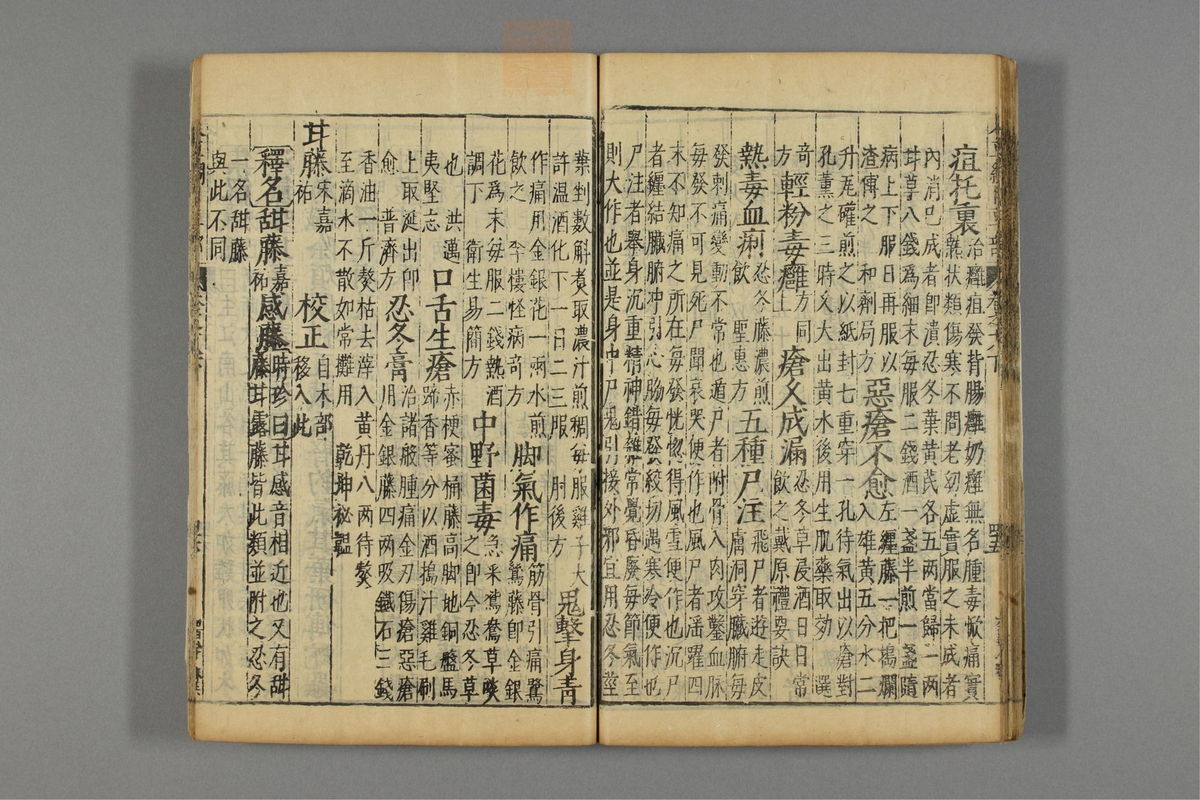 疽托裏治癰疽發背腸癰奶癰無名腫毒焮痛實
熱狀類傷寒不問老幼虛實服之未成者
內消已成者卽潰忍冬葉黃芪各五兩當歸一兩
甘草八錢爲細末每服二錢酒一盞半煎一盞隨
病上下服日再服以
渣傅之 和劑局方 惡瘡不愈左纏藤一把搗爛
入雄黃五分水二
升瓦罐煎之以紙封七重穿一孔待氣出以瘡對
孔薰之三時久大出黃水後用生肌藥取效 選
奇
方 輕粉毒癰方同
上 瘡久成漏忍冬草浸酒日日常
飲之戴原禮要訣
熱毒血痢忍冬藤濃煎
飲 聖惠方 五種尸注飛尸者遊走皮
膚洞穿臟腑每
發刺痛變動不常也遁尸者附骨入肉攻鑿血脈
每發不可見死尸聞哀哭便作也風尸者淫躍四
末不知痛之所在每發恍惚得風雪便作也沉尸
者纏結臟腑冲引心脇每發絞切遇寒冷便作也
尸注者舉身沉重精神錯雜常覺昏廢每節氣至
則大作也並是身中尸鬼引接外邪宜用忍冬莖
葉剉數斛煑取濃汁煎稠每服雞子大
許溫酒化下一日二三服 肘後方 鬼擊身靑
作痛用金銀花一兩水煎
飲之 李樓怪病奇方 脚氣作痛筋骨引痛鷺
鷥藤卽金銀
花爲末每服二錢熱酒
調下 衛生易簡方 中野菌毒急采鴛鴦草啖
之卽今忍冬草
也 洪邁
夷堅志 口舌生瘡赤梗蜜桶藤高脚地銅盤馬
蹄香等分以酒搗汁雞毛刷
上取涎出卽
愈 普濟方 忍冬膏治諸般腫痛金刃傷瘡惡瘡
用金銀藤四兩吸鐵石三錢
香油一斤熬枯去滓入黃丹八兩待熬
至滴水不散如常攤用 乾坤秘韞
甘藤宋嘉
祐 校正自木部
移入此
釋名甜藤嘉
祐感藤時珍曰甘感音相近也又有甜
藤甘露藤皆此類並附之忍冬
一名甜藤
與此不同